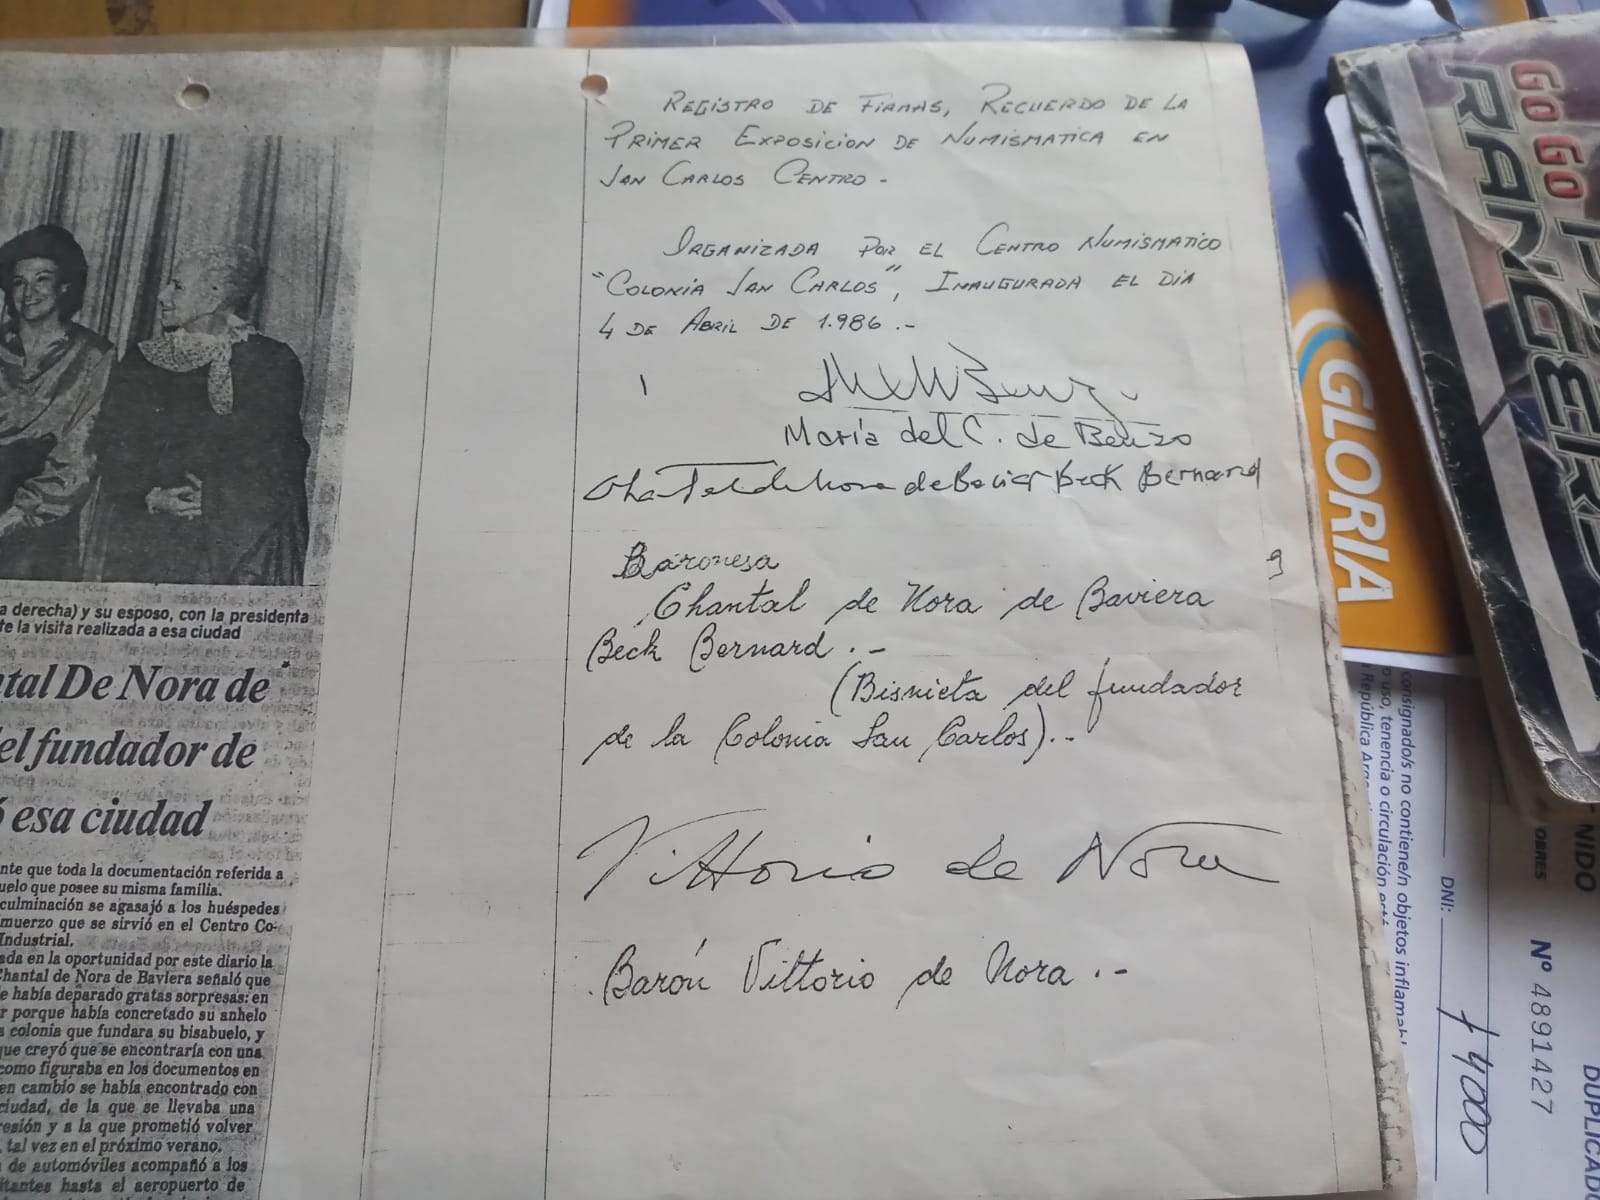 a derecha) y su esposo, con la presidenta
te la visita realizada a esa ciudad
tal De Nora de
el fundador de
ó esa ciudad
nte que toda la documentación referida a
uelo que posee su misma familia.
culminación se agasajó a los huéspedes
muerzo que se sirvió en el Centro Co-
Industrial.
ada en la oportunidad por este diario la
Chantal de Nora de Baviera señaló que
e había deparado gratas sorpresas: en
r porque había concretado su anhelo
a colonia que fundara su bisabuelo, y
que creyó que se encontraría con una
como figuraba en los documentos en
en cambio se había encontrado con
ciudad, de la que se llevaba una
resión y a la que prometió volver
tal vez en el próximo verano.
de automóviles acompañó a los
itantes hasta el aeropuerto de
REGISTRO DE FIRMAS, RECUERDO DE LA
PRIMER EXPOSICION DE NUMISMATICA EN
SAN CARLOS CENTRO -
ORGANIZADA POR EL CENTRO NUMISMATICO
"COLONIA SAN CARLOS", INAUGURADA EL DIA
4 DE ABRIL DE 1.986.-
María del C. de Benzo
Chantal de Nora de Bavier Beck Bernard
Baronesa
Chantal de Nora de Baviera
Beck Bernard.-
(Bisnieta del fundador
de la Colonia San Carlos).-
Vittorio de Nora
Barón Vittorio de Nora.-
GLORIA
GO GO
RANGERS
consignado/s no contiene/n objetos inflamabl
o uso, tenencia o circulación está
República Arge
DNI:
OBRES
NIDO
Nº 4891427
DUPLICADO